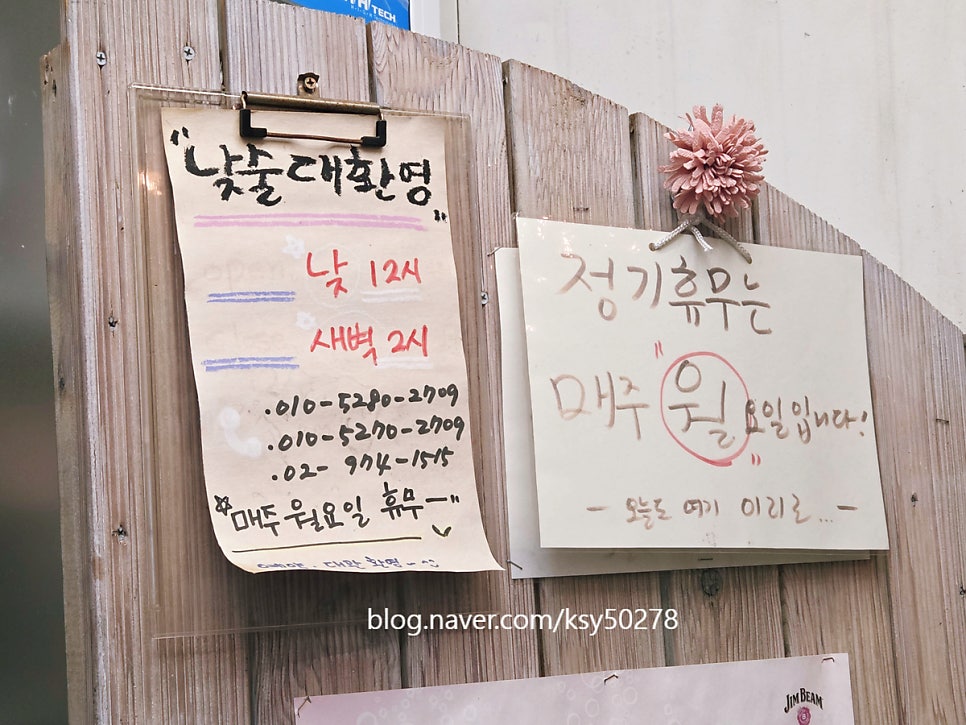 TECH
"낮술대환영"
낮 12시
새벽 2시
.010-5280-2709
.010-5270-2709
.02- 974-1515
☆매주 월요일 휴무-"
대관 환영~^^
정기휴무는
매주 "월"요일입니다!
- 오늘도 여기 이리로... -
blog.naver.com/ksy50278
JIM BEAM